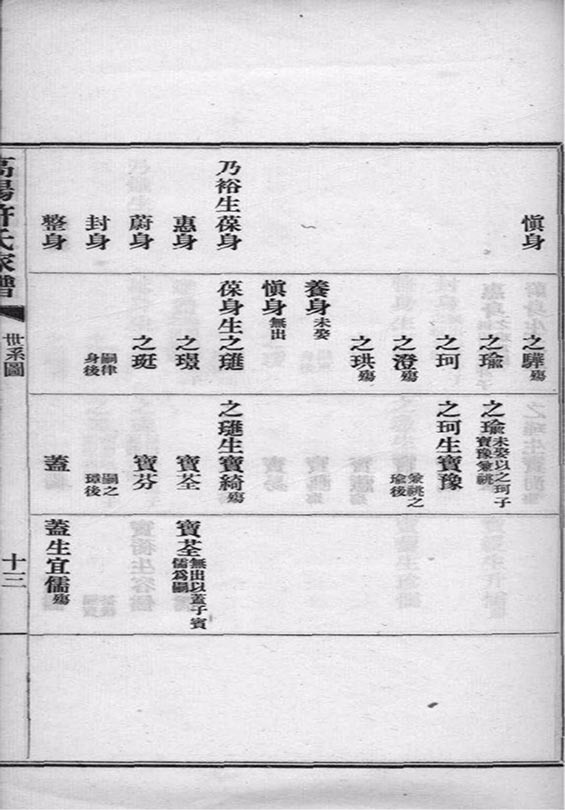 慎身
乃裕生葆身
惠身
蔚身
封身
整身
之驊殤
之瑜
之珂
之澄殤
之珙殤
養身未娶
慎身無出
葆身生之璡
之璟
之珽
嗣律
身後
之瑜未娶以之珂子
寶豫兼祧
之珂生寶豫
兼祧之
瑜後
之璡生寶綺殤
寶荃
寶芬
嗣之
璋後
蓋
寶荃無出以蓋子寶
儒為嗣
蓋生宜儒殤
高陽許氏家譜
世系圖
十三